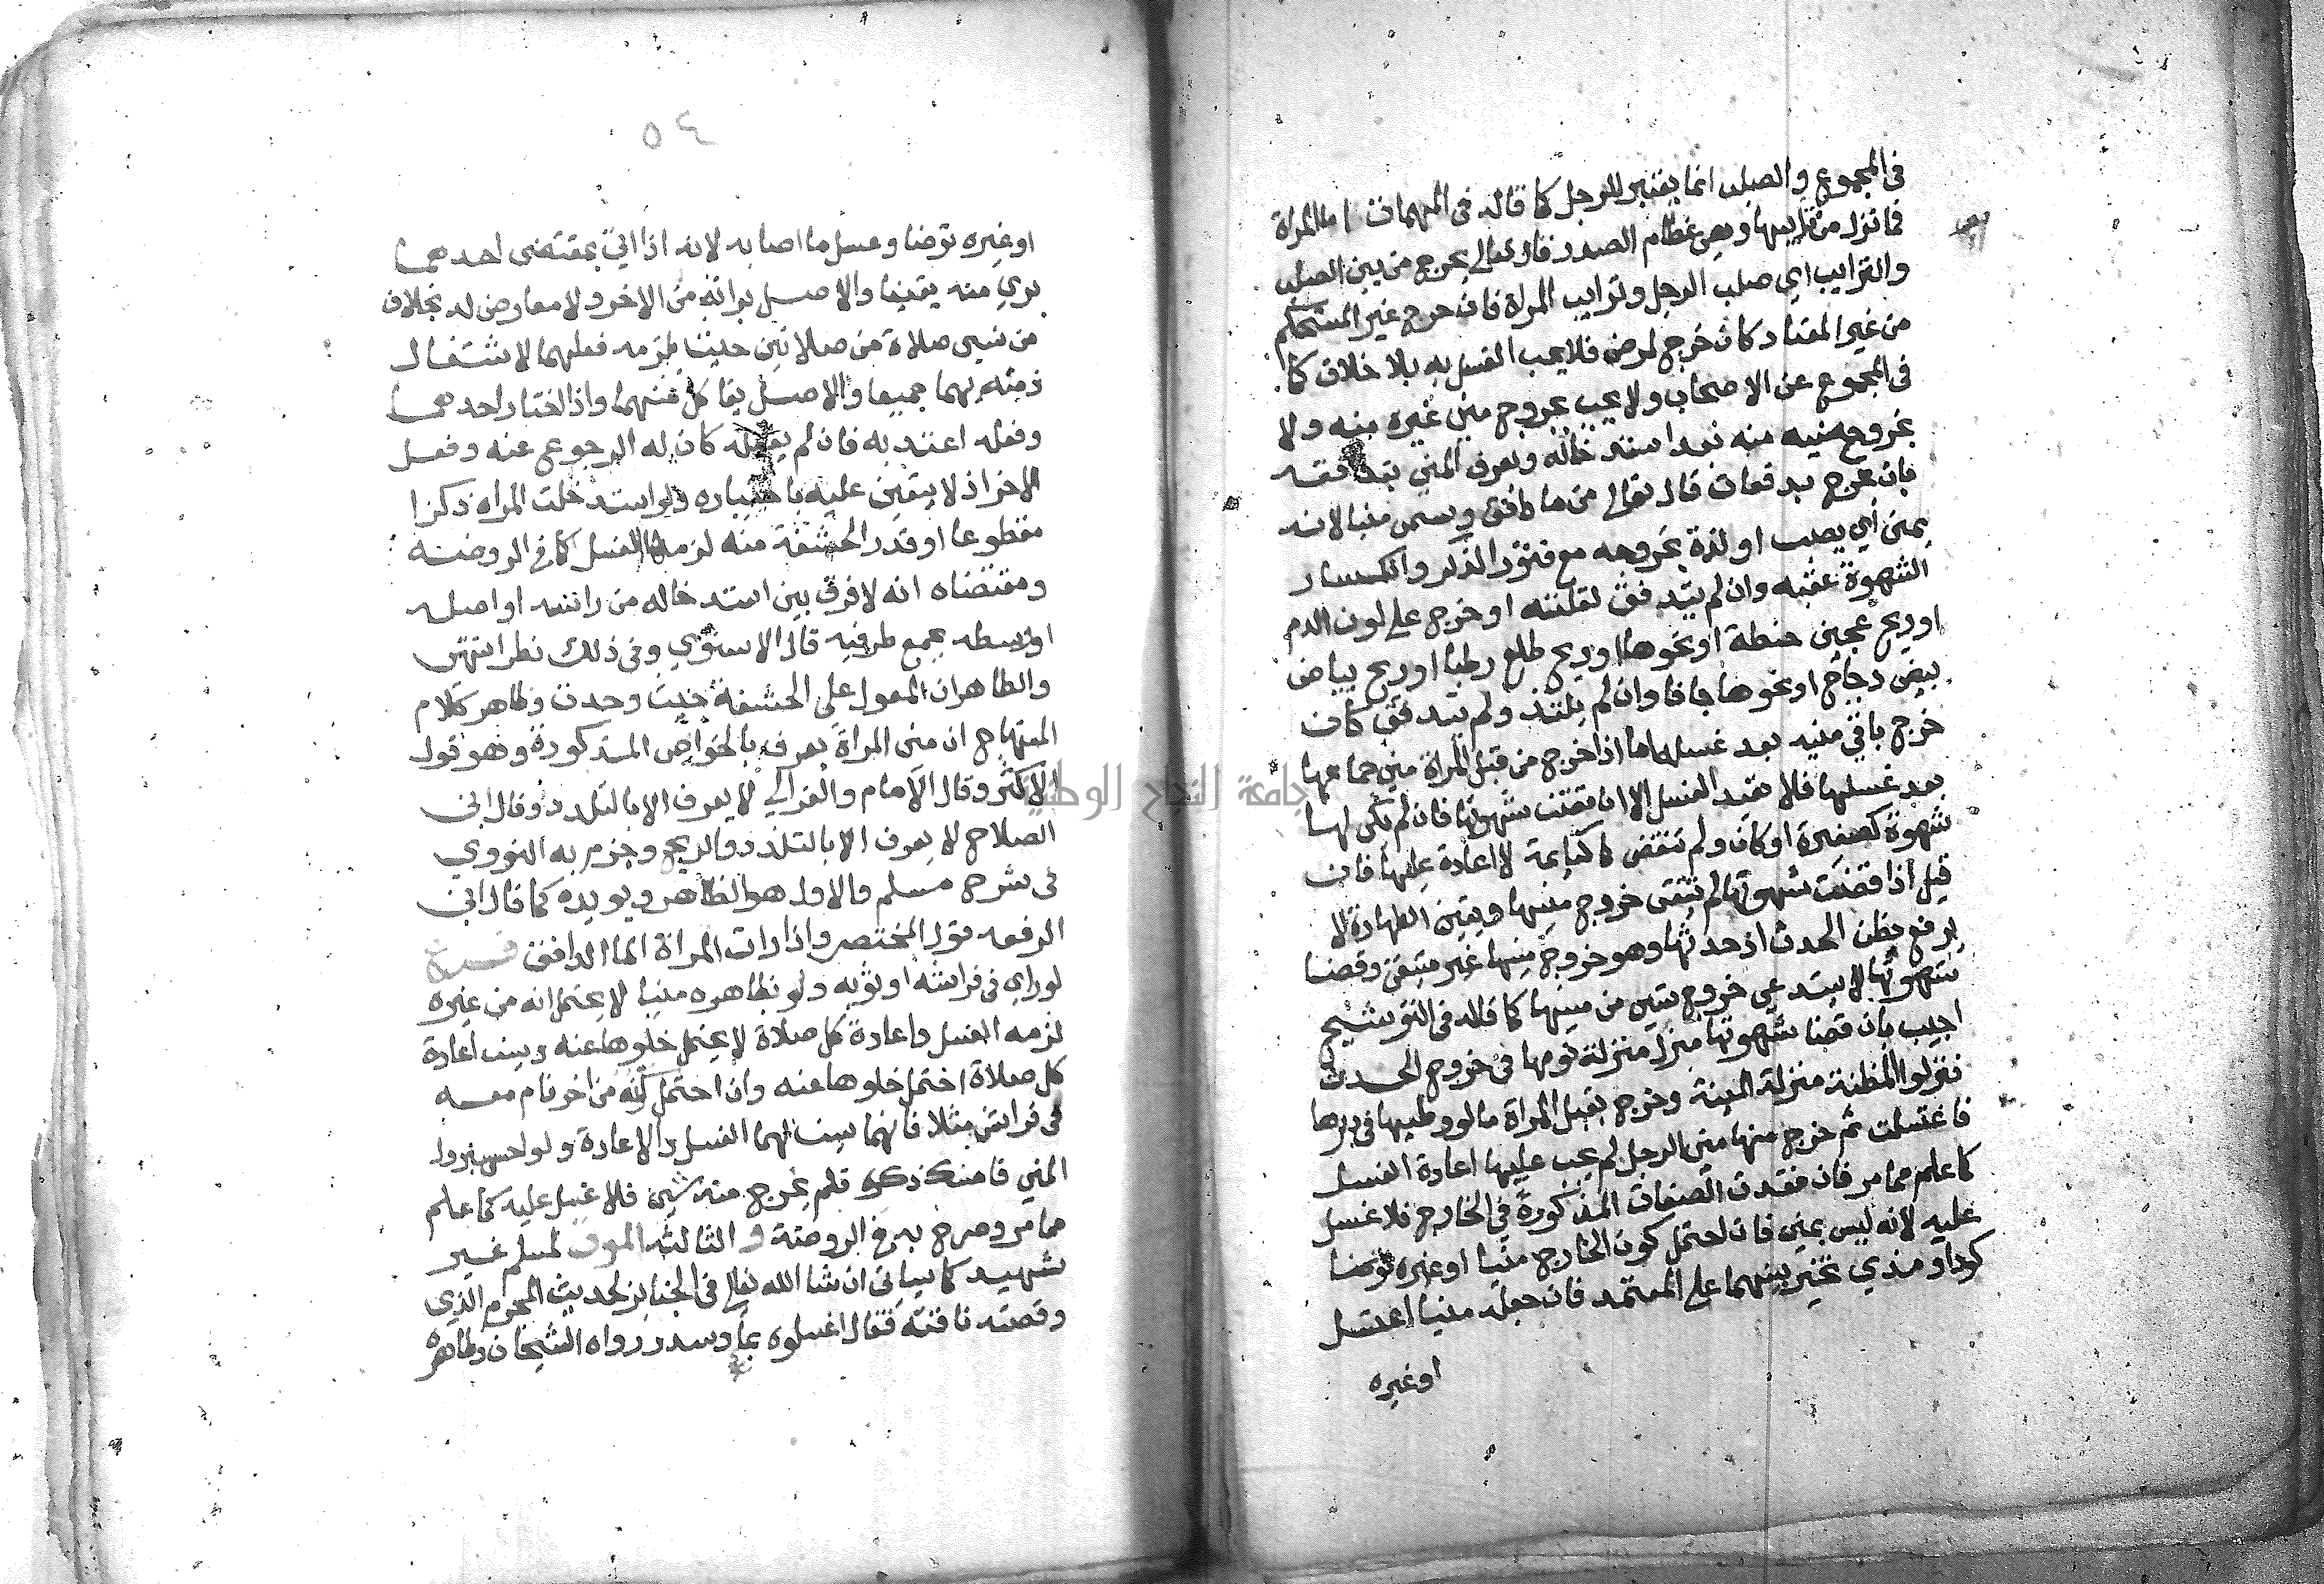 في المجموع والصلب انما يعتبر للرجل كما قاله في المهمات اما المراة
فما نزل من ترايبها وهي عظام الصدر قال تعالى يخرج من بين الصلب
والترايب اي صلب الرجل وترايب المراة فان خرج غير المستحكم
من غير المعتاد كان خرج لمرض فلا يجب الغسل به بلا خلاف كما
في المجموع عن الاصحاب ولا يجب بخروج مني غيره منه ولا
بخروج منيه منه بعد استدخاله ويعرف المني بتدفقه
بان يخرج بدفعات قال تعالى من ما دافق وسمى منيا لانه
يمنى اي يصب او لذة بخروجه مع فتور الذكر وانكسار
الشهوة عقبه وان لم يتدفق لقلته او خرج على لون الدم
او ريح عجين حنطة او نحوها او ريح طلع رطبا او ريح بياض
بيض دجاج او نحوها جافا وان لم يلتذ ولم يتدفق كان
خرج باقي منيه بعد غسله اما اذا خرج من قبل المراة مني جماعها
بعد غسلها فلا تعيد الغسل الا ان قضت شهوتها فان لم يكن لها
شهوة كصغيرة او كان ولم تقض كنايمة لا اعادة عليها فان
قيل اذا قضت شهوتها لم تتيقن خروج منيها ويقين الطهارة لا
يرفع بظن الحدث اذ حدثها وهو خروج منيها غير متيقن وقضا
شهوتها لا يستدعي خروج شي من منيها كما قاله في التوشيح
اجيب بان قضا شهوتها منزل منزلة نومها في خروج الحدث
فنزلوا المظنة منزلة المينة وخرج بقبل المراة ما لو وطيها في دبرها
فاغتسلت ثم خرج منها مني الرجل لم يجب عليها اعادة الغسل
كما علم مما مر فان فقدت الصفات المذكورة في الخارج فلا غسل
عليه لانه ليس بمني فان احتمل كون الخارج منيا او غيره
كودي او مذي تخير بينهما على المعتمد فان جعله منيا اغتسل
او غيره
٥٤
او غيره توضا وغسل ما اصابه لانه اذا اتى بمقتضى احدهما
بري منه يقينا والاصل براته من الاخر ولا معارض له بخلاف
من نسي صلاة من صلاتين حيث يلزمه فعلهما لاشتغال
ذمته بهما جميعا والاصل بقا كل منهما واذا اختار احدهما
وفعله اعتد به فان لم يفعله كان له الرجوع عنه وفعل
الاخر اذ لا يتعين عليه باختياره ولو استدخلت المراه ذكرا
مقطوعا او قدر الحشفة منه لزمها الغسل كما في الروضة
ومقتضاه انه لا فرق بين استدخاله من راسه او اصله
او وسطه بجمع طرفيه قال الاسنوي وفي ذلك نظر انتهى
والظاهر ان المعول على الحشفة حيث وجدت وظاهر كلام
المنهاج ان مني المراة يعرف بالخواص المذكورة وهو قول
الاكثر وقال الامام والغزالي لا يعرف الا بالتلذذ وقال ابن
الصلاح لا يعرف الا بالتلذذ والريح وجزم به النووي
في شرح مسلم والاول هو الظاهر ويويده كما قال ابن
الرفعه قول المختصر واذا رات المراة الما الدافق فرع
لو راى في فراشه او ثوبه ولو بظاهره منيا لا يحتمل انه من غيره
لزمه الغسل واعادة كل صلاة لا يحتمل خلوها عنه ويسن اعادة
كل صلاة احتمل خلوها عنه وان احتمل كونه من اخر نام معه
في فراش مثلا فانهما يسن لهما الغسل والاعادة ولو احس بنزول
المني فامسك ذكره فلم يخرج منه شي فلا غسل عليه كما علم
مما مر وصرح به في الروضة و الثالثه الموت لمسلم غير
شهيد كما سياتي ان شا الله تعالى في الجنايز لحديث المحرم الذي
وقصته ناقته فقال اغسلوه بما وسدر رواه الشيخان وظاهره
جامعة النجاح الوطنية